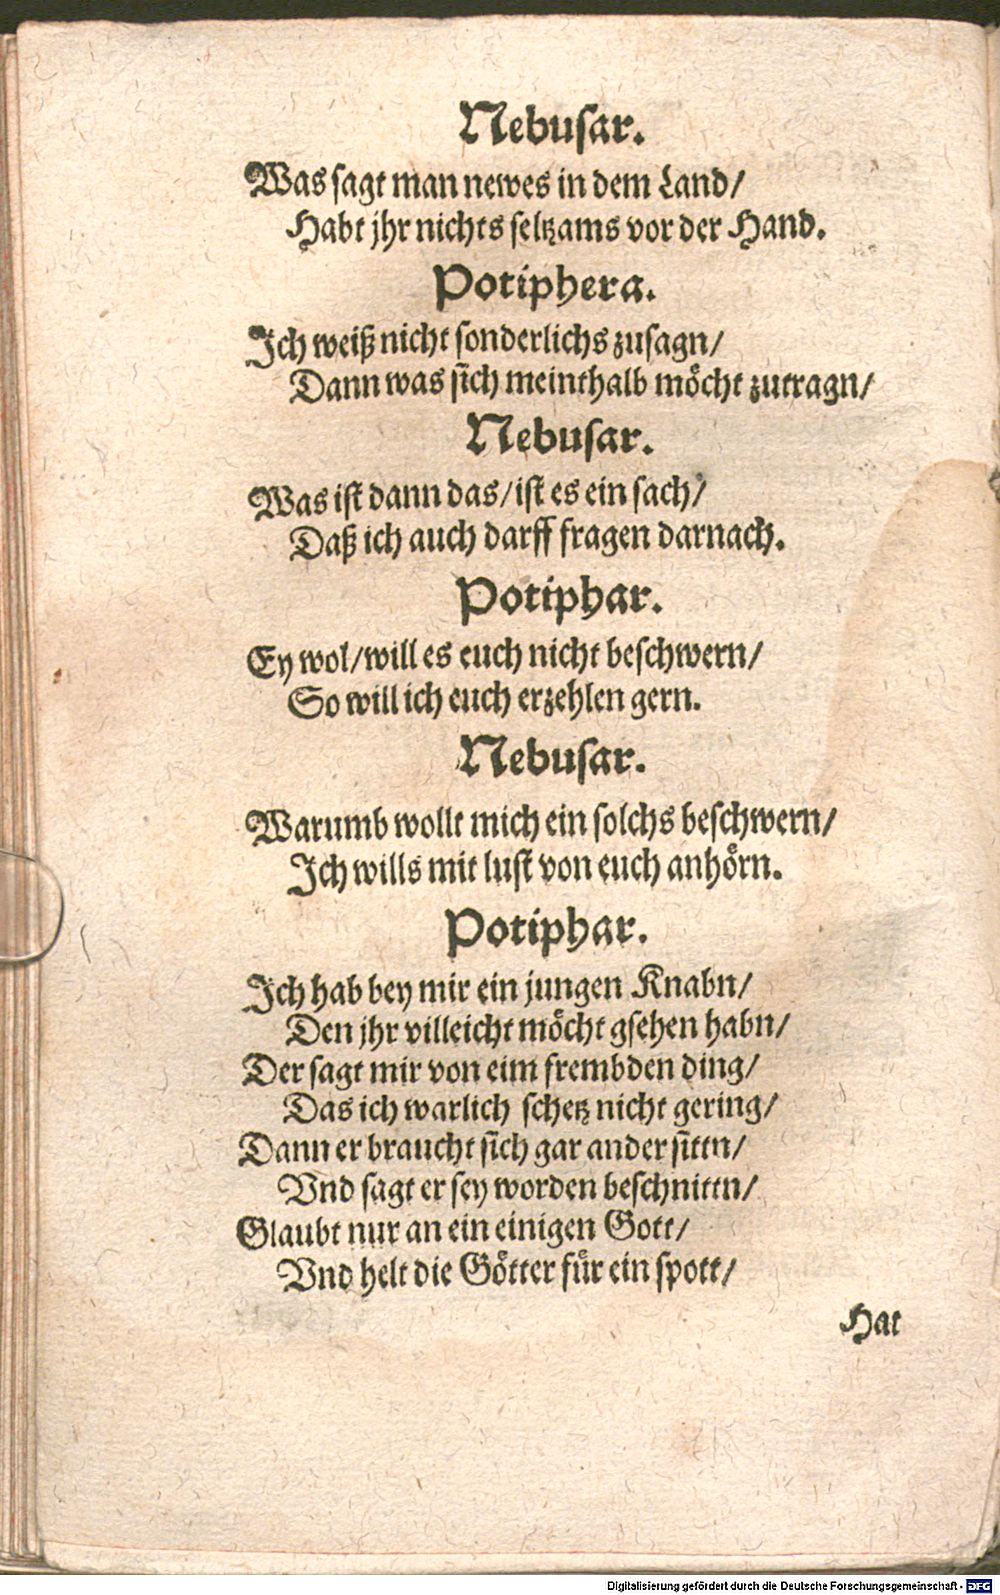 Nebusar.
Was sagt man newes in dem Land/
Habt jhr nichts seltzams vor der Hand.
Potiphera.
Ich weiß nicht sonderlichs zusagn/
Dann was sich meinthalb möcht zutragn/
Nebusar.
Was ist dann das/ ist es ein sach/
Daß ich auch darff fragen darnach.
Potiphar.
Ey wol/ will es euch nicht beschwern/
So will ich euch erzehlen gern.
Nebusar.
Warumb wollt mich ein solchs beschwern/
Ich wills mit lust von euch anhörn.
Potiphar.
Ich hab bey mir ein jungen Knabn/
Den jhr villeicht möcht gsehen habn/
Der sagt mir von eim frembden ding/
Das ich warlich schetz nicht gering/
Dann er braucht sich gar ander sittn/
Vnd sagt er sey worden beschnittn/
Glaubt nur an ein einigen Gott/
Vnd helt die Götter für ein spott/
Hat
Digitalisierung gefördert durch die Deutsche Forschungsgemeinschaft - DFG